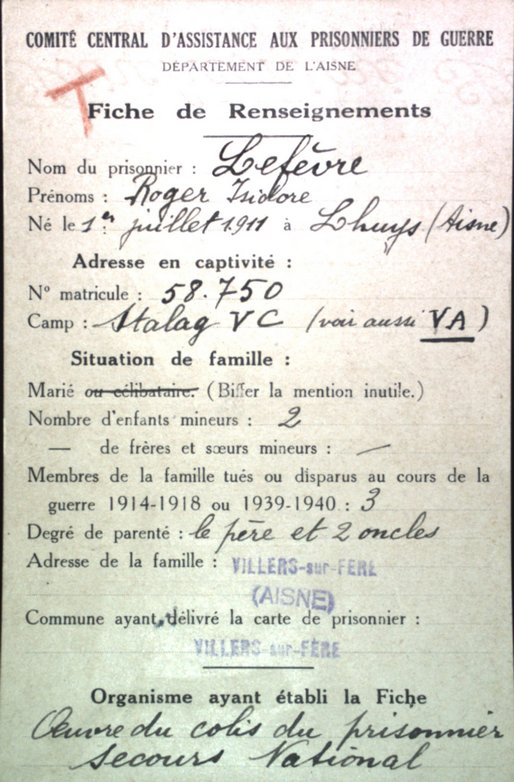 COMITÉ CENTRAL D'ASSISTANCE AUX PRISONNIERS DE GUERRE
DÉPARTEMENT DE L'AISNE
T
Fiche de Renseignements
Nom du prisonnier : Lefèvre
Prénoms : Roger Isidore
Né le 1er juillet 1911 à Lhuys (Aisne)
Adresse en captivité :
N° matricule : 58.750
Camp : Stalag V C (voir aussi V A)
Situation de famille :
Marié ou célibataire. (Biffer la mention inutile.)
Nombre d'enfants mineurs : 2
— de frères et sœurs mineurs : —
Membres de la famille tués ou disparus au cours de la
guerre 1914-1918 ou 1939-1940 : 3
Degré de parenté : le père et 2 oncles
Adresse de la famille : VILLERS-sur-FÈRE
(AISNE)
Commune ayant délivré la carte de prisonnier :
VILLERS-sur-FÈRE
Organisme ayant établi la Fiche
Œuvre du colis du prisonnier
Secours National